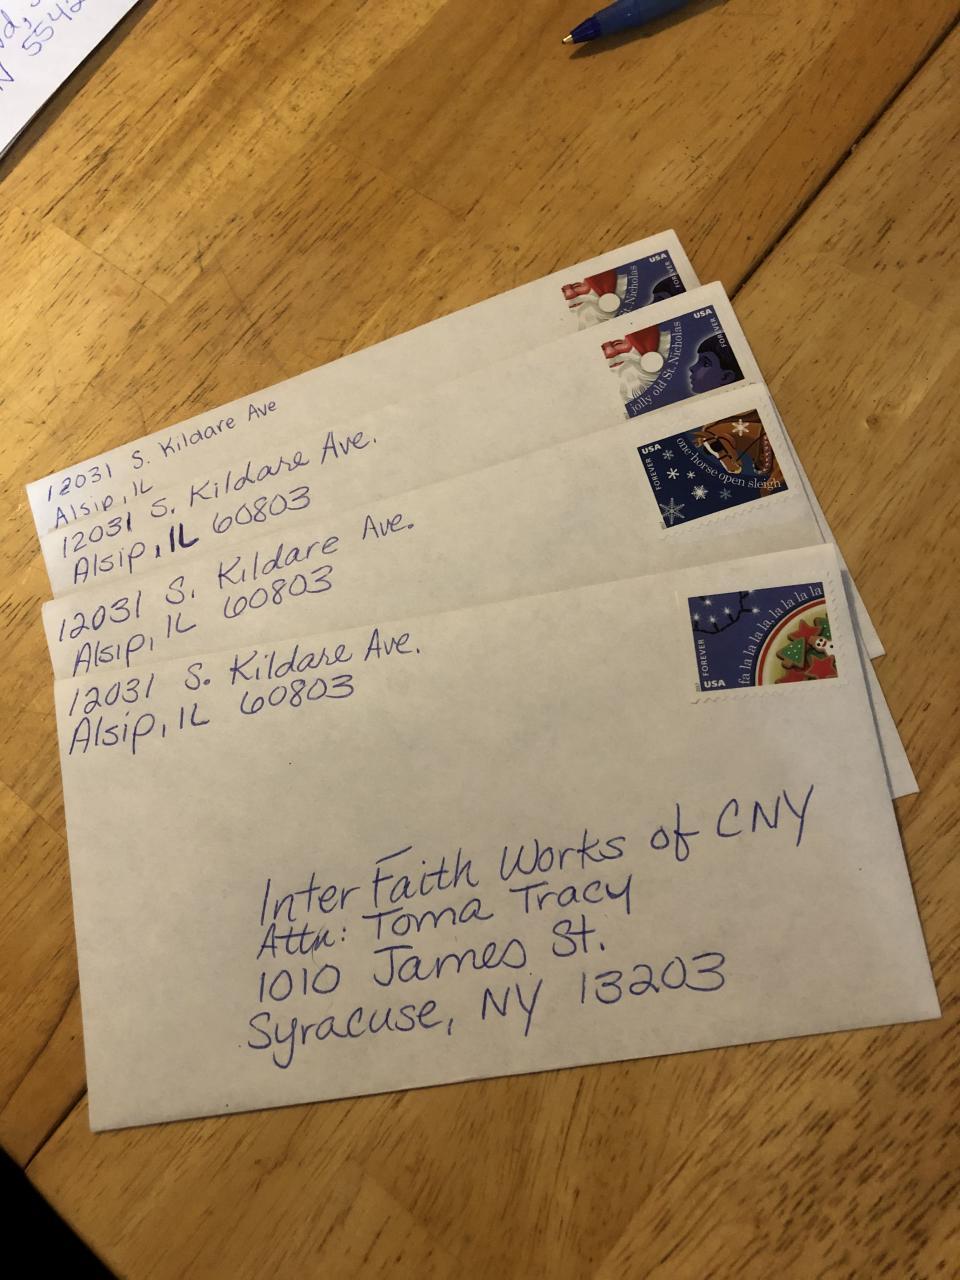 5542
USA
FOREVER
St. Nicholas
12031 S. Kildare Ave
Alsip, IL
USA
FOREVER
jolly old St. Nicholas
12031 S. Kildare Ave.
Alsip, IL 60803
USA
FOREVER
one-horse open sleigh
12031 S. Kildare Ave.
Alsip, IL 60803
fa la la la la, la la la la
FOREVER
USA
12031 S. Kildare Ave.
Alsip, IL 60803
Inter Faith Works of CNY
Attn: Toma Tracy
1010 James St.
Syracuse, NY 13203